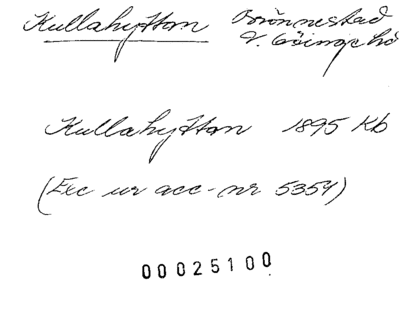 Kullahyttan Brönnestad
V. Göinge hd
Kullahyttan 1895 Kb
(Exc ur acc-nr 5354)
00025100